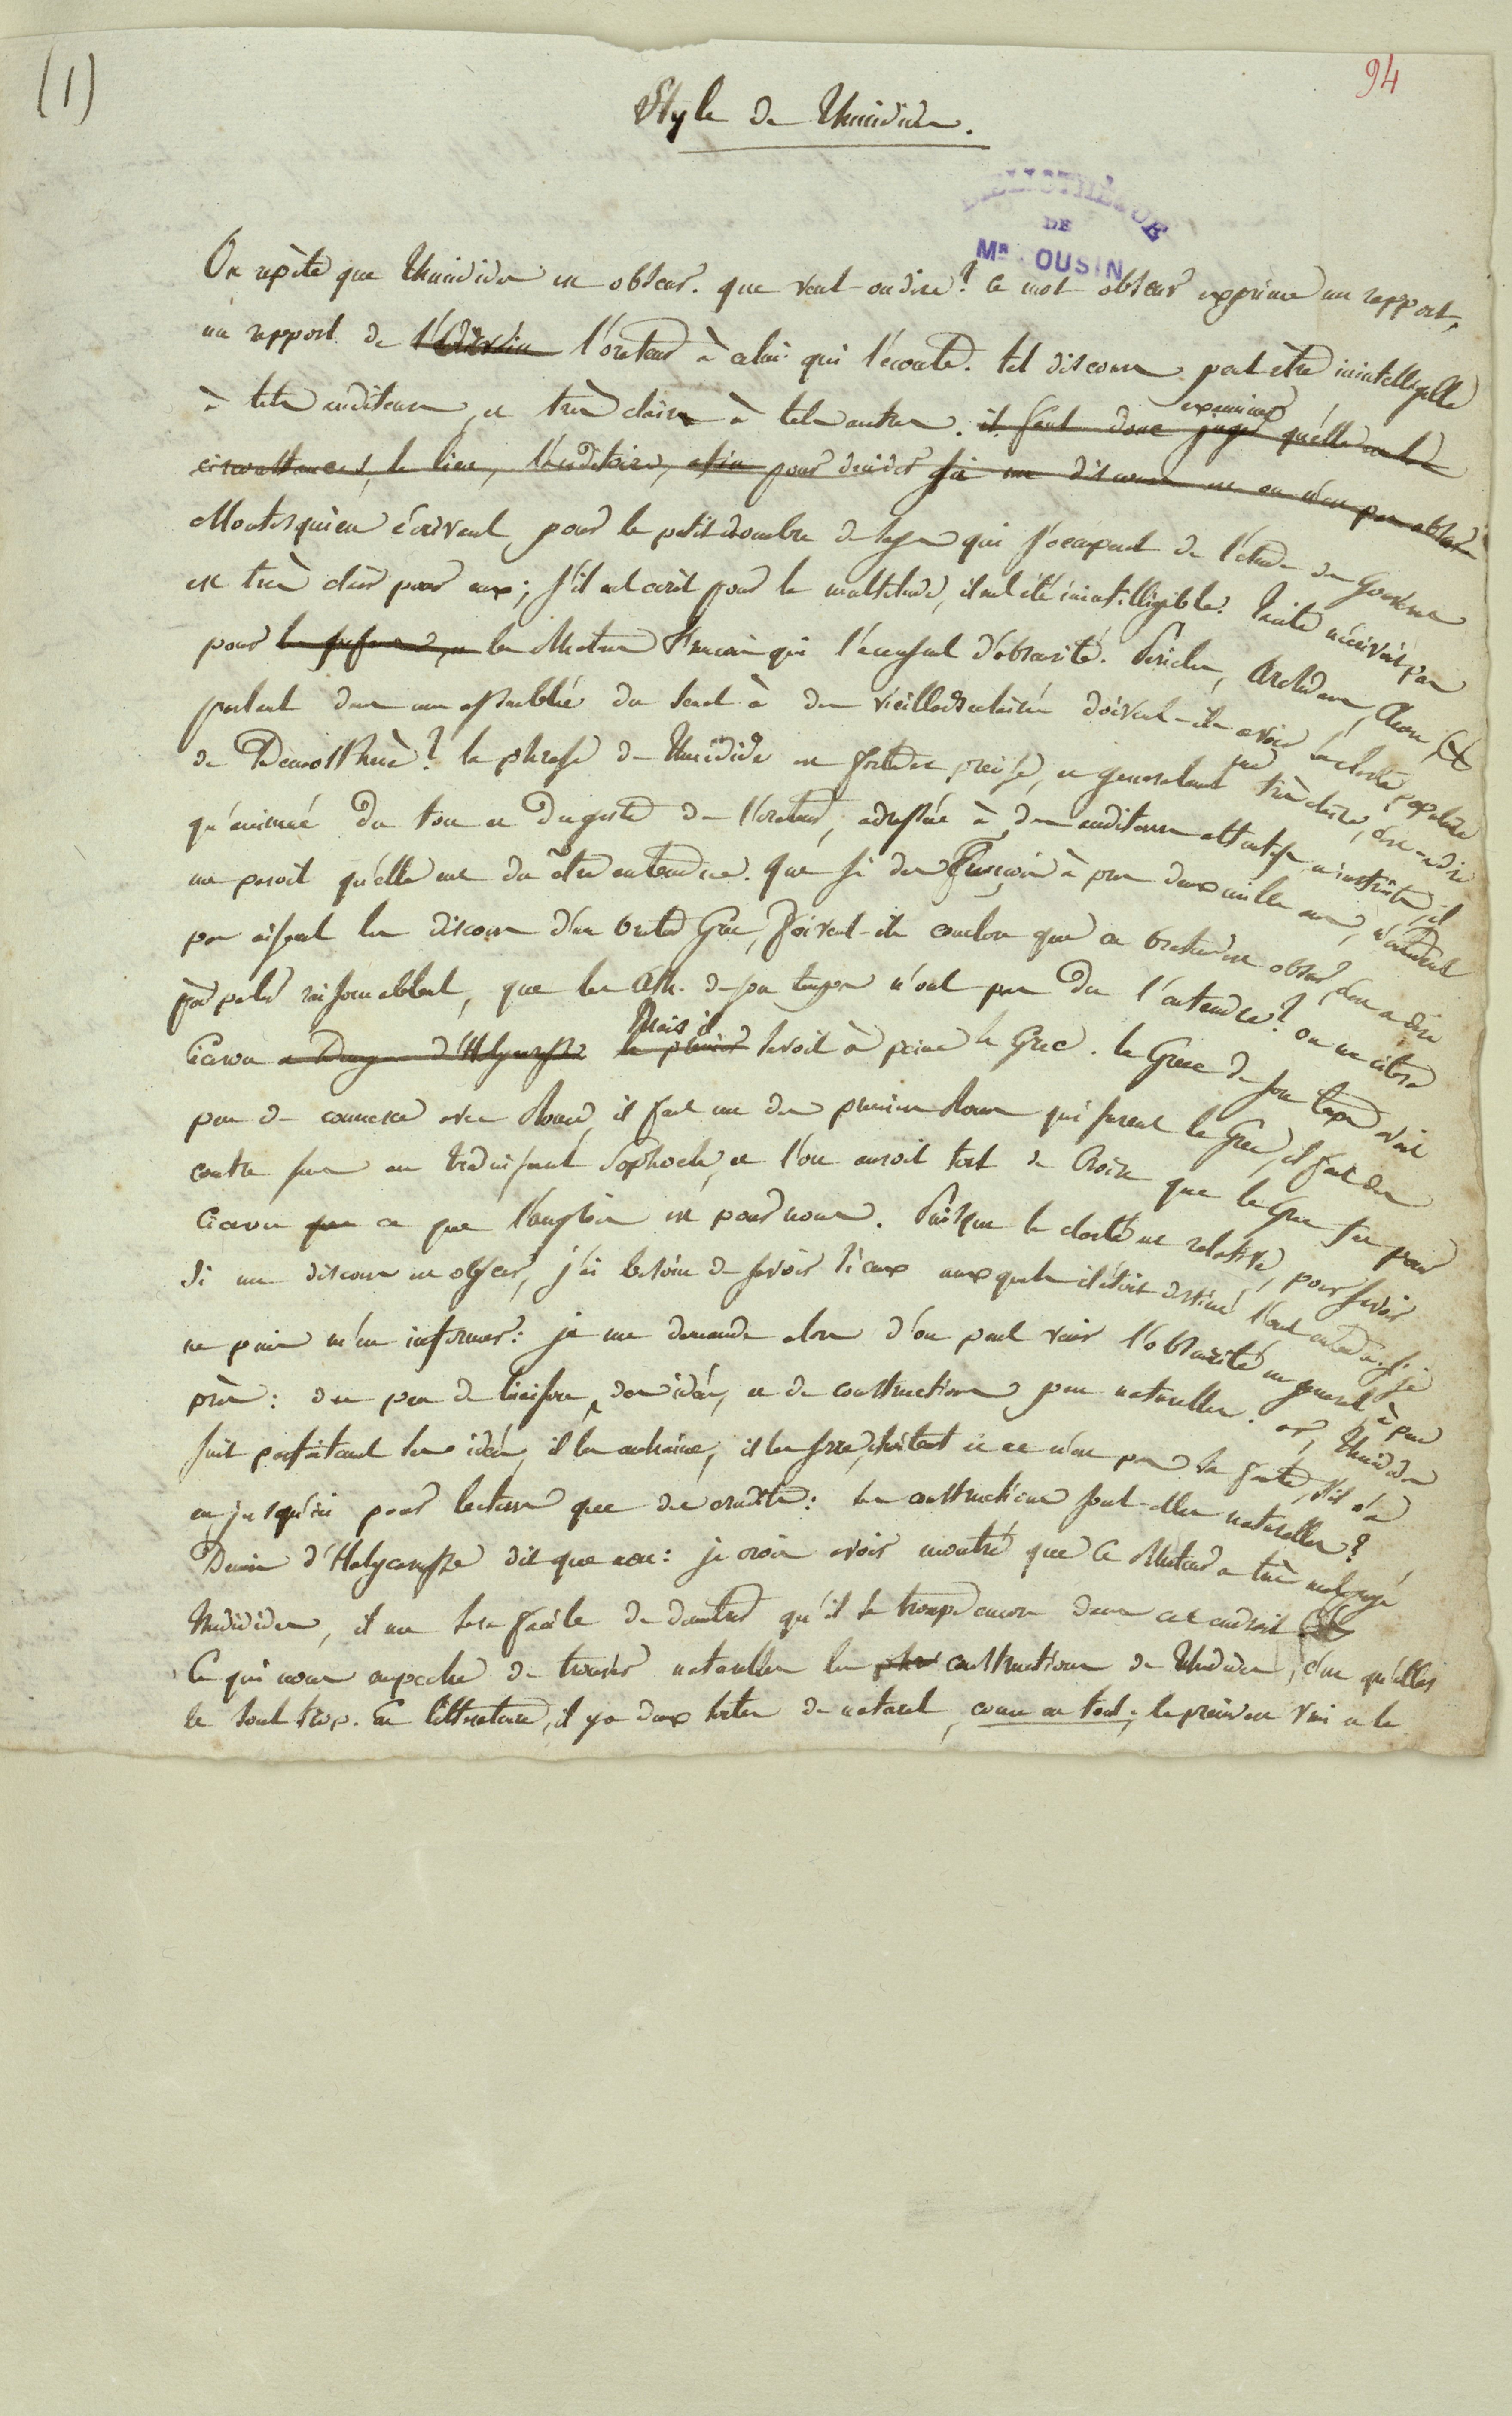 (1)
94
Style de Thucidide.
BIBLIOTHÈQUE
DE
MR COUSIN
On repète que Thucidide est obscur. que veut-on dire? ce mot obscur exprime un rapport,
un rapport de l'écrivain l'orateur à celui qui l'écoute. tel discours peut être inintelligible
à tels auditeurs, et très clair à tels autres. il faut donc juger examiner quelles sont les
circonstances, le lieu, l'auditoire, afin pour décider si un discours est ou n'est pas obscur
Montesquieu écrivant pour le petit nombre de sages qui s'occupent de l'étude des Gouvernem
est très clair pour eux; s'il eut écrit pour la multitude, il eut été inintelligible. Tacite n'écrivait pas
pour les Rheteurs François qui l'accusent d'obscurité. Periclès, Archidam, Cleon,
parlant dans une assemblée du Senat à des vieillards éclairés doivent-ils avoir la clarté populaire
de Demosthène? la phrase de Thucidide est forte et précise, et generalement très claire, c'est-à-dire
qu'animée du ton et du geste de l'orateur, adressée à des auditeurs attentifs et instruits, il
me paroit qu'elle a du être entendue. Que si des François à près deux mille ans, n'entendent
pas aisément les discours d'un orateur Grec, doivent-ils conclure que cet orateur est obscur, c'est a dire
pour parler raisonnablement, que les Ath. de son temps n'ont pas du l'entendre? on me citera
Ciceron et Denys d'Halycarnasse le premier Mais il savoit à peine le Grec. la Grece de son temps avoit
peu de commerce avec Rome, il fut un des premiers Rom. qui surent le Grec, il fait des
contre sens en traduisant Sophocle, et l'on auroit tort de croire que le Grec fut pour
Ciceron que ce que l'anglois est pour nous. Puisque la clarté est relative, pour savoir
si un discours est obscur, j'ai besoin de savoir si ceux auxquels il étoit destiné l'ont entendu. si je
ne puis m'en informer: je me demande alors d'où peut venir l'obscurité en general à peu
près: du peu de liaison des idées, et de constructions peu naturelles. or, Thucidide
suit parfaitement ses idées, il les enchaine, il les serre étroitement et ce n'est pas sa faute, s'il n'a
eu jusqu'ici pour lecteurs que des erudits: ses constructions sont-elles naturelles?
Denis d'Halycarnasse dit que non: je crois avoir montré que ce Rheteur a très mal jugé
Thucidide, il me sera facile de douter qu'il se trompe encore dans cet endroit
Ce qui nous empeche de trouver naturelles les constructions de Thucidide, c'est qu'elles
le sont trop. En littérature, il y a deux sortes de naturel, comme en tout; le premier est vrai et le